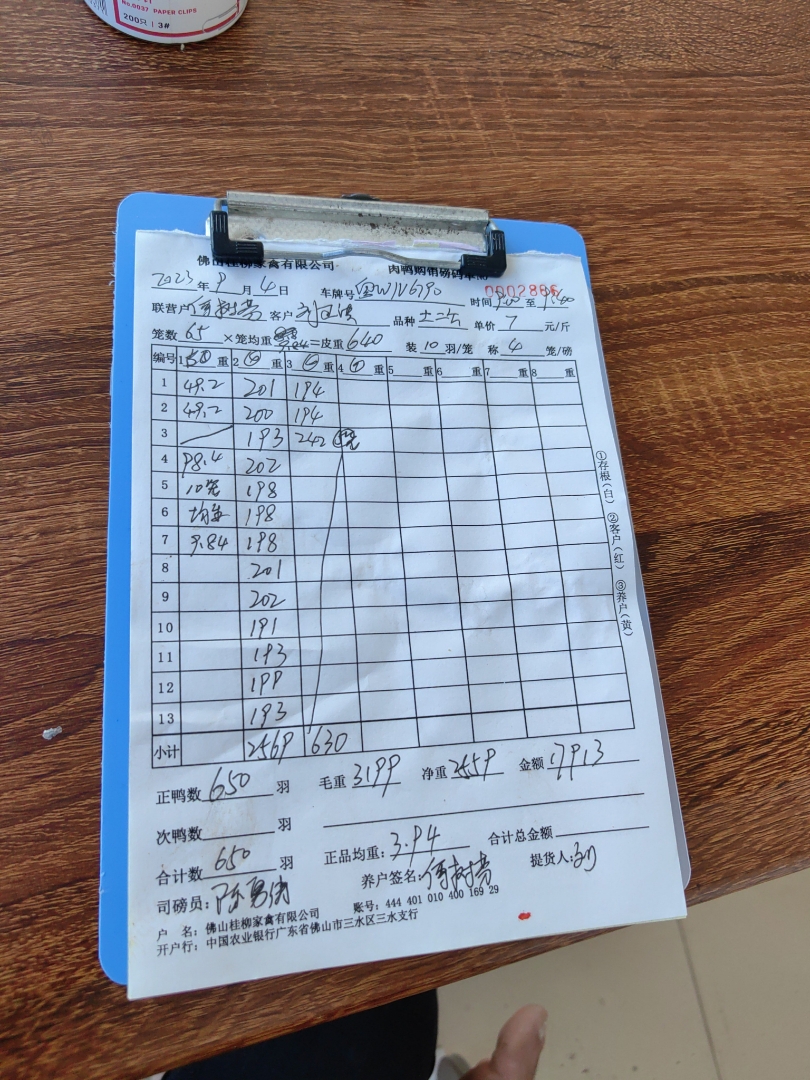 No.0037 PAPER CLIPS
200只 | 3#
佛山桂柳家禽有限公司 肉鸭购销磅码单
0002886
2023年 9月 4日 车牌号 时间 9:00 至 9:40
联营户 何树劳 客户 品种 土二 单价 7 元/斤
笼数 65 ×笼均重 9.84 =皮重 640 装 10 羽/笼 称 4 笼/磅
编号 1 5 重 2 4 重 3 4 重 4 重 5 重 6 重 7 重 8 重
1 49.2 201 194
2 49.2 200 194
3 193 242 5笼
4 98.4 202
5 10笼 198
6 均重 198
7 9.84 198
8 201
9 202
10 191
11 193
12 199
13 193
小计 2569 630
正鸭数 650 羽 毛重 3199 净重 2559 金额 17913
次鸭数 羽
合计数 650 羽 正品均重: 3.94 合计总金额
司磅员: 养户签名: 何树劳 提货人: 刘
户 名: 佛山桂柳家禽有限公司 账号: 444 401 010 400 169 29
开户行: 中国农业银行广东省佛山市三水区三水支行
①存根(白) ②客户(红) ③养户(黄)